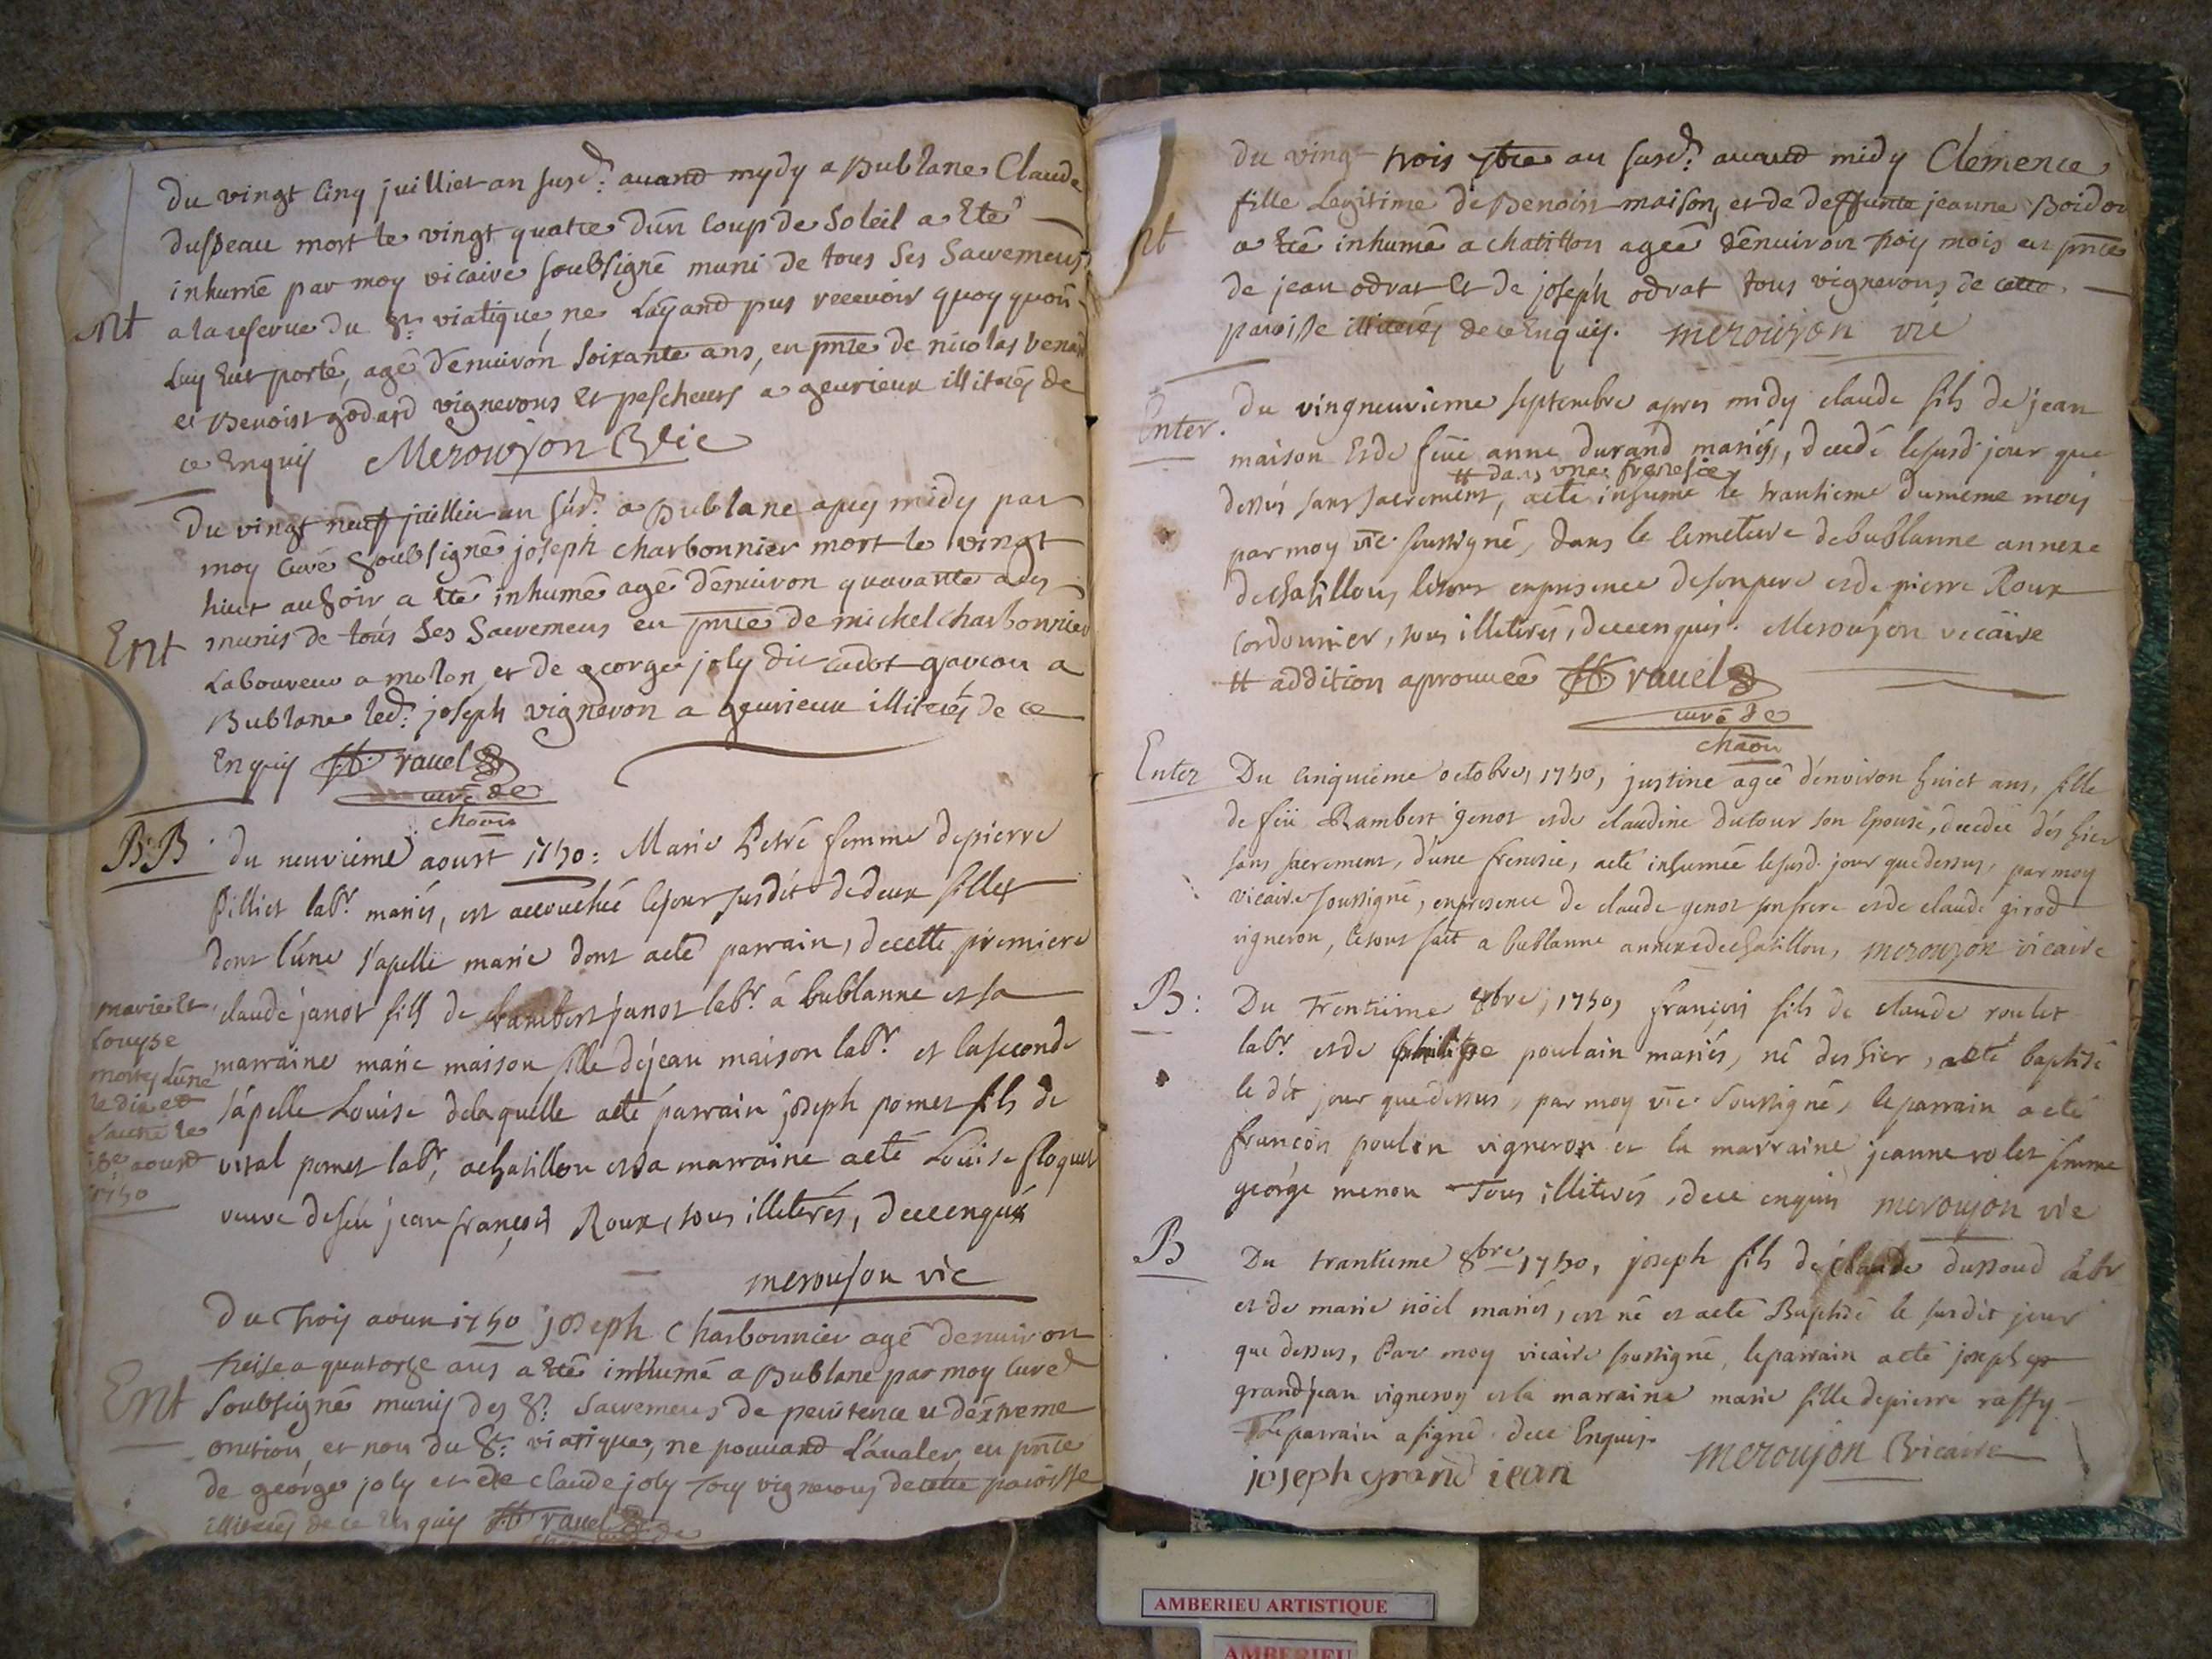 Du vingt Cinq juilliet an susd: avand mydy a Bublane Claude
dusseau mort le vingt quatre d'un coup de Soleil a Eté
inhumé par moy vicaire soubsigné muni de tous Ses Sacremens
nt
a la reserve du St viatique ne Layand pus recevoir quoy quon
Luy Eut porté, agé d'environ soixante ans, en pnce de nicolas
et Benoist godard vignerons Et pescheurs a gevrieux illiterés de
ce Enquis Meroujon Vic
Du vingt neuf juillet an sud: a Bublane apres midy par
moy Curé Soubsigné joseph charbonnier mort le vingt
huit au soir a Eté inhumé agé d'environ quarante ades
Ent
munis de tous Ses Sacremens en pnce de michel charbonnier
Laboureur a molon et de george joly dit cadot garcon a
Bublane led: joseph vigneron a gevrieux illiterés de ce
Enquis ravel
curé de
chaon
B:B
du neuvieme aoust 1750: Marie Petré femme de pierre
Pilliet labr. mariés, est accouchée lejour susdit de deux filles
dont l'une s'apelle marie dont acté parrain, decette premiere
marie Et
claude janot fils de Rambert janot labr. à bublanne et sa
Louyse
marraine marie maison fille de jean maison labr. et la seconde
mortes Lune
s'apelle Louise delaquelle aeté parrain joseph pomet fils de
le dix et
Lautre le
vital pomet labr, achatillon et sa marraine aeté Louise floquet
18e aoust
1750
veuve defeu jean françois Roux, tous illiterés, dece enquis
meroujon vic
Du Troy aoux 1750 joseph Charbonnier agé denviron
treise a quatorse ans a Eté inhumé a Bublane par moy Curé
Ent
Soubsigné munis des St Sacremens de penitence et d'extreme
onction, et non du St: viatique, ne pouvand L'avaler, en pnce
de george joly et de Claude joly Tous vignerons de cette paroisse
illiterés de ce Enquis ravel
curé de
du vingt trois 7bre an susd: avand midy Clemence
fille Legitime de Benoist maison, et de deffunte jeanne Boidon
nt
a Eté inhumé a chatillon ageé d'environ troy mois en pnce
de jean odrat Et de joseph odrat tous vignerons de cette
paroisse illiterés de ce Enquis. meroujon vic
Enter.
Du vingneuvieme septembre apres midy claude fils de jean
maison et de feüe anne durand mariés, decedé lesusd jour que
# dans une frenesie
dessus sans sacrement, aeté inhumé le trantieme dumeme mois
par moy vic. soussigné, dans le cimetiere debublanne annexe
dechatillon, letout enpresence desonpere et de pierre Roux
cordonnier, tous illiterés, dece enquis. Meroujon vicaire
# addition aprouveé ravel
curé de
chaon
Enter
Du cinquieme octobre, 1750, justine ageé d'environ huict ans, fille
de feü Rambert genot et de claudine dutour son Epouse, decedeé dés hier
sans sacrement, d'une frenesie, aeté inhumée lesusd. jour quedessus, par moy
vicaire soussigné, enpresence de claude genot sonfrere et de claude girod
vigneron, letout fait a bublanne annexe dechatillon, meroujon vicaire
B:
Du Trentieme 8bre, 1750, françois fils de claude roulet
labr. et de poulain mariés, né des hier, aeté baptisé
le dit jour quedessus, par moy vic. Soussigné, leparrain aeté
françois poulin vigneron et la marraine jeanne rolet femme
george menon Tous illiterés, dece enquis meroujon vic
B
Du trantieme 8bre, 1750, joseph fils de claude dussoud labr
et de marie nöel mariés, est né et aeté Baptisé le susdit jour
que dessus, Par moy vicaire soussigné, leparrain aeté joseph
grandjean vigneron et la marraine marie fille depierre raffy
Leparrain a signé dece Enquis. meroujon Vicaire
joseph grand jean
AMBERIEU ARTISTIQUE
AMBERIEU